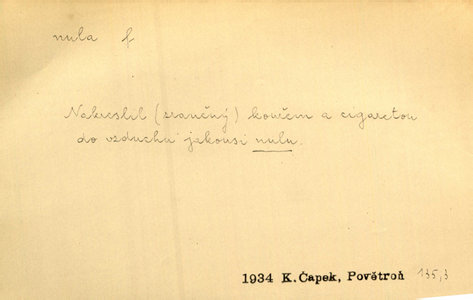 nula f
Nakreslil (zraněný) koncem a cigaretou
do vzduchu jakousi nulu.
1934 K.Čapek, Povětroň 135,3